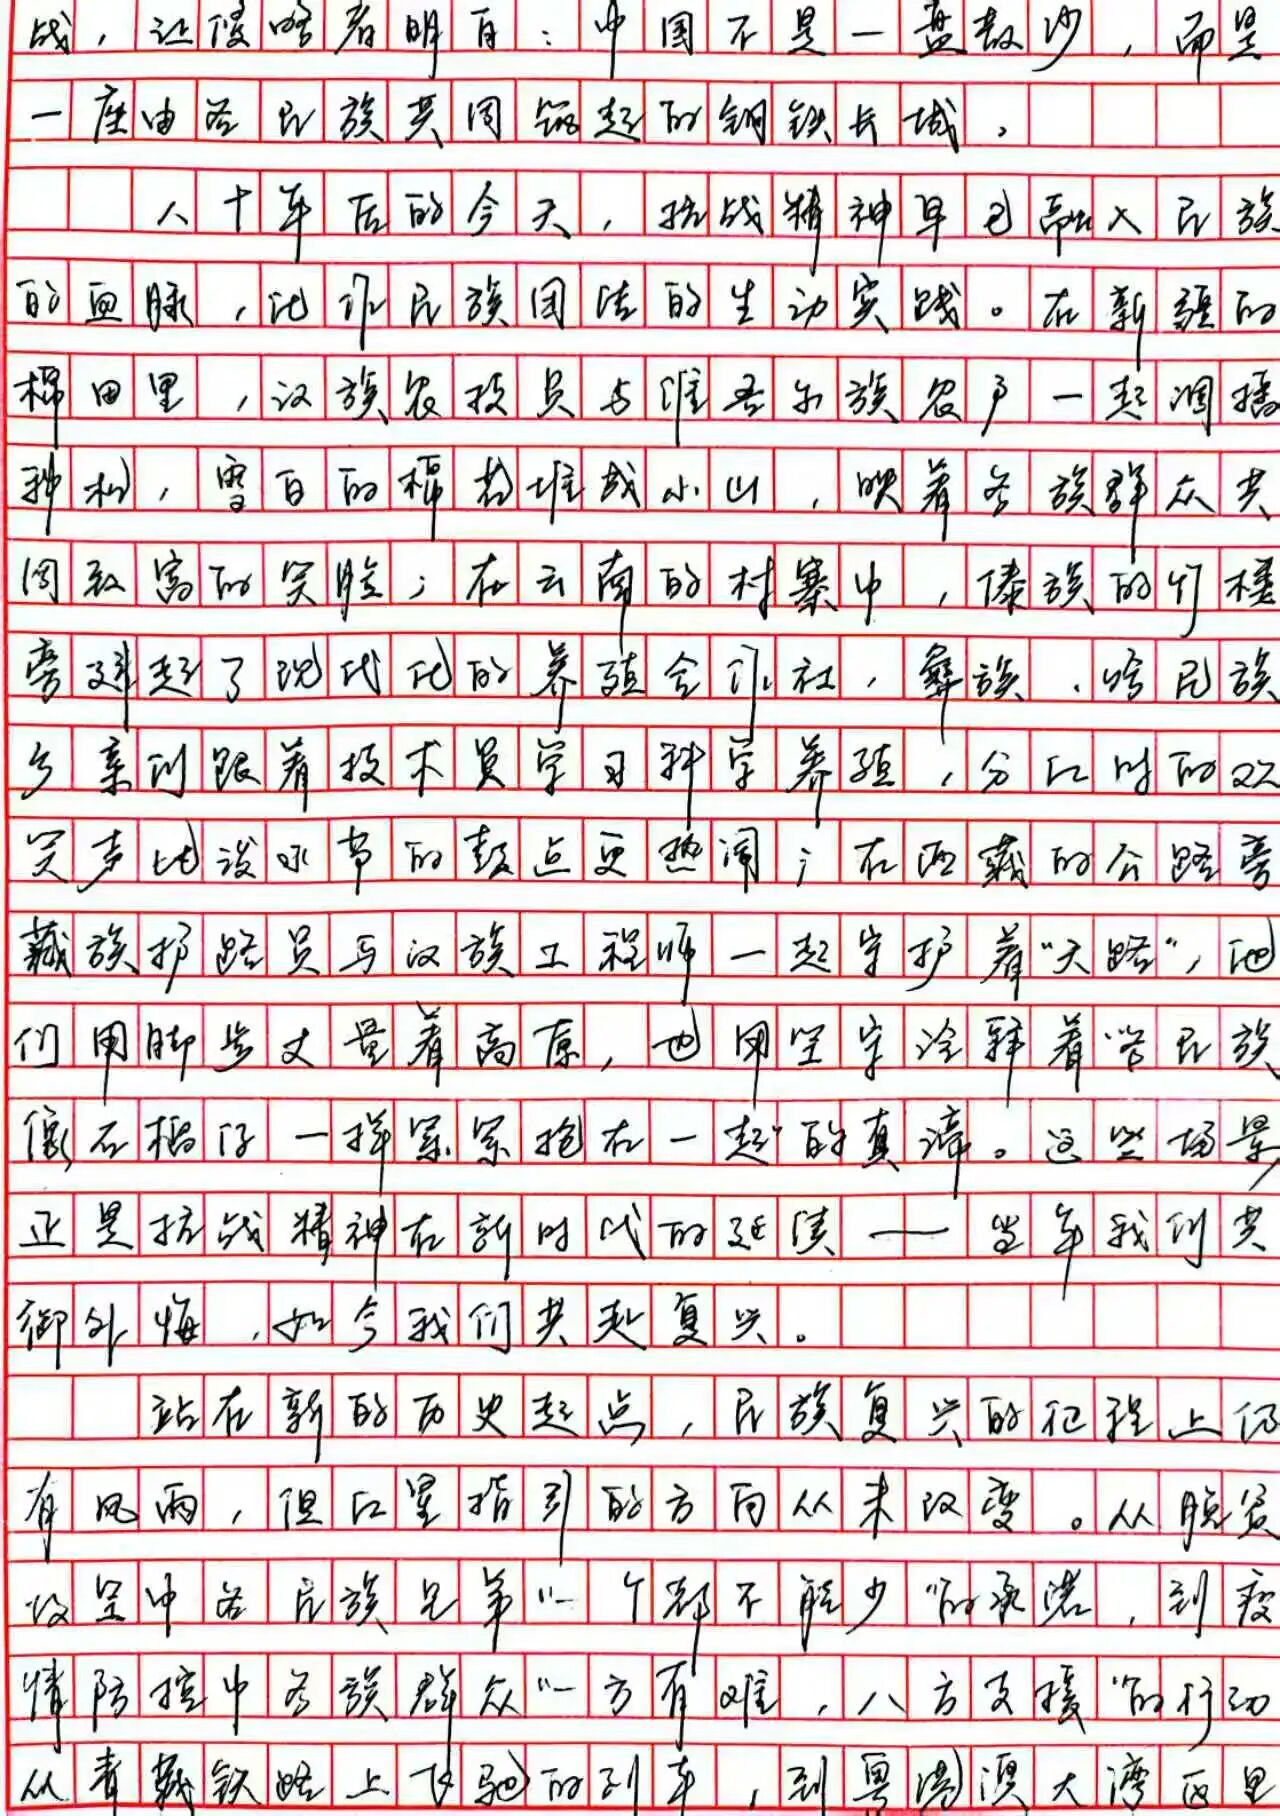 战，让侵略者明白：中国不是一盘散沙，而是
一座由各民族共同筑起的钢铁长城。
八十年后的今天，抗战精神早已融入民族
的血脉，化作民族团结的生动实践。在新疆的
棉田里，汉族农技员与维吾尔族农户一起调播
种机，雪白的棉花堆成小山，映着各族群众共
同致富的笑脸；在云南的村寨中，傣族的竹楼
旁建起了现代化的养殖合作社，彝族、哈尼族
乡亲们跟着技术员学习科学养殖，分红时的欢
笑声比泼水节的鼓点更热闹；在西藏的公路旁
藏族护路员与汉族工程师一起守护着“天路”，他
们用脚步丈量着高原，也用坚守诠释着“各民族
像石榴仔一样紧紧抱在一起”的真谛。这些场景，
正是抗战精神在新时代的延续——当年我们共
御外侮，如今我们共赴复兴。
站在新的历史起点，民族复兴的征程上仍
有风雨，但红星指引的方向从未改变。从脱贫
攻坚中各民族兄弟“一个都不能少”的承诺，到疫
情防控中各族群众“一方有难，八方支援”的行动
从青藏铁路上飞驰的列车，到粤港澳大湾区里